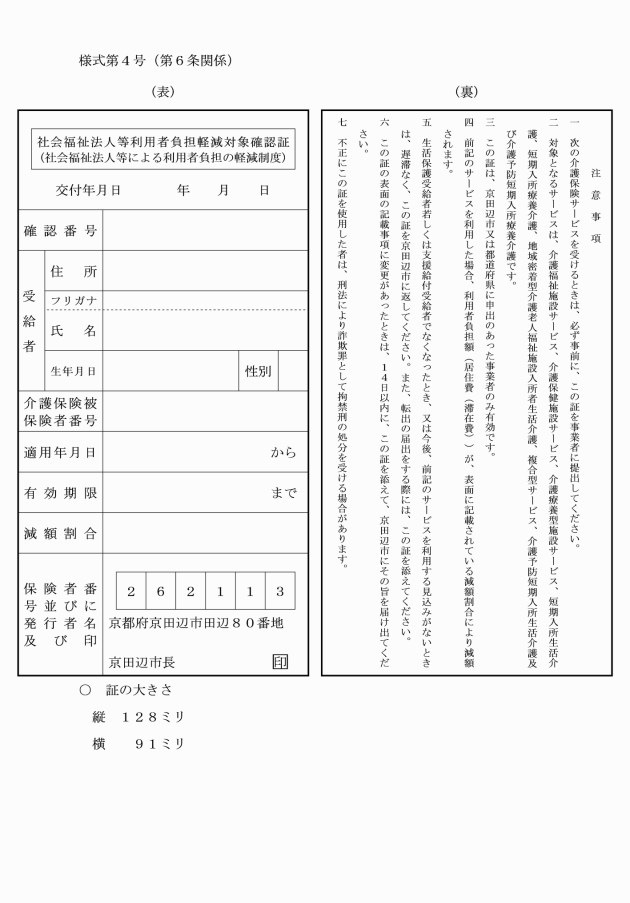 様式第４号（第６条関係）
（表）
社会福祉法人等利用者負担軽減対象確認証
（社会福祉法人等による利用者負担の軽減制度）
交付年月日　　　　年　　月　　日
確認番号
受給者
住所
フリガナ
氏名
生年月日
性別
介護保険被
保険者番号
適用年月日
から
有効期限
まで
減額割合
保険者番
号並びに
発行者名
及び印
２６２１１３
京都府京田辺市田辺８０番地
京田辺市長　印
（裏）
注意事項
一　次の介護保険サービスを受けるときは、必ず事前に、この証を事業者に提出してください。
二　対象となるサービスは、介護福祉施設サービス、介護保健施設サービス、介護療養型施設サービス、短期入所生活介
護、短期入所療養介護、地域密着型介護老人福祉施設入所者生活介護、複合型サービス、介護予防短期入所生活介護及
び介護予防短期入所療養介護です。
三　この証は、京田辺市又は都道府県に申出のあった事業者のみ有効です。
四　前記のサービスを利用した場合、利用者負担額（居住費（滞在費））が、表面に記載されている減額割合により減額
されます。
五　生活保護受給者若しくは支援給付受給者でなくなったとき、又は今後、前記のサービスを利用する見込みがないとき
は、遅滞なく、この証を京田辺市に返してください。また、転出の届出をする際には、この証を添えてください。
六　この証の表面の記載事項に変更があったときは、１４日以内に、この証を添えて、京田辺市にその旨を届け出てくだ
さい。
七　不正にこの証を使用した者は、刑法により詐欺罪として拘禁刑の処分を受ける場合があります。
○　証の大きさ
縦　１２８ミリ
横　　９１ミリ